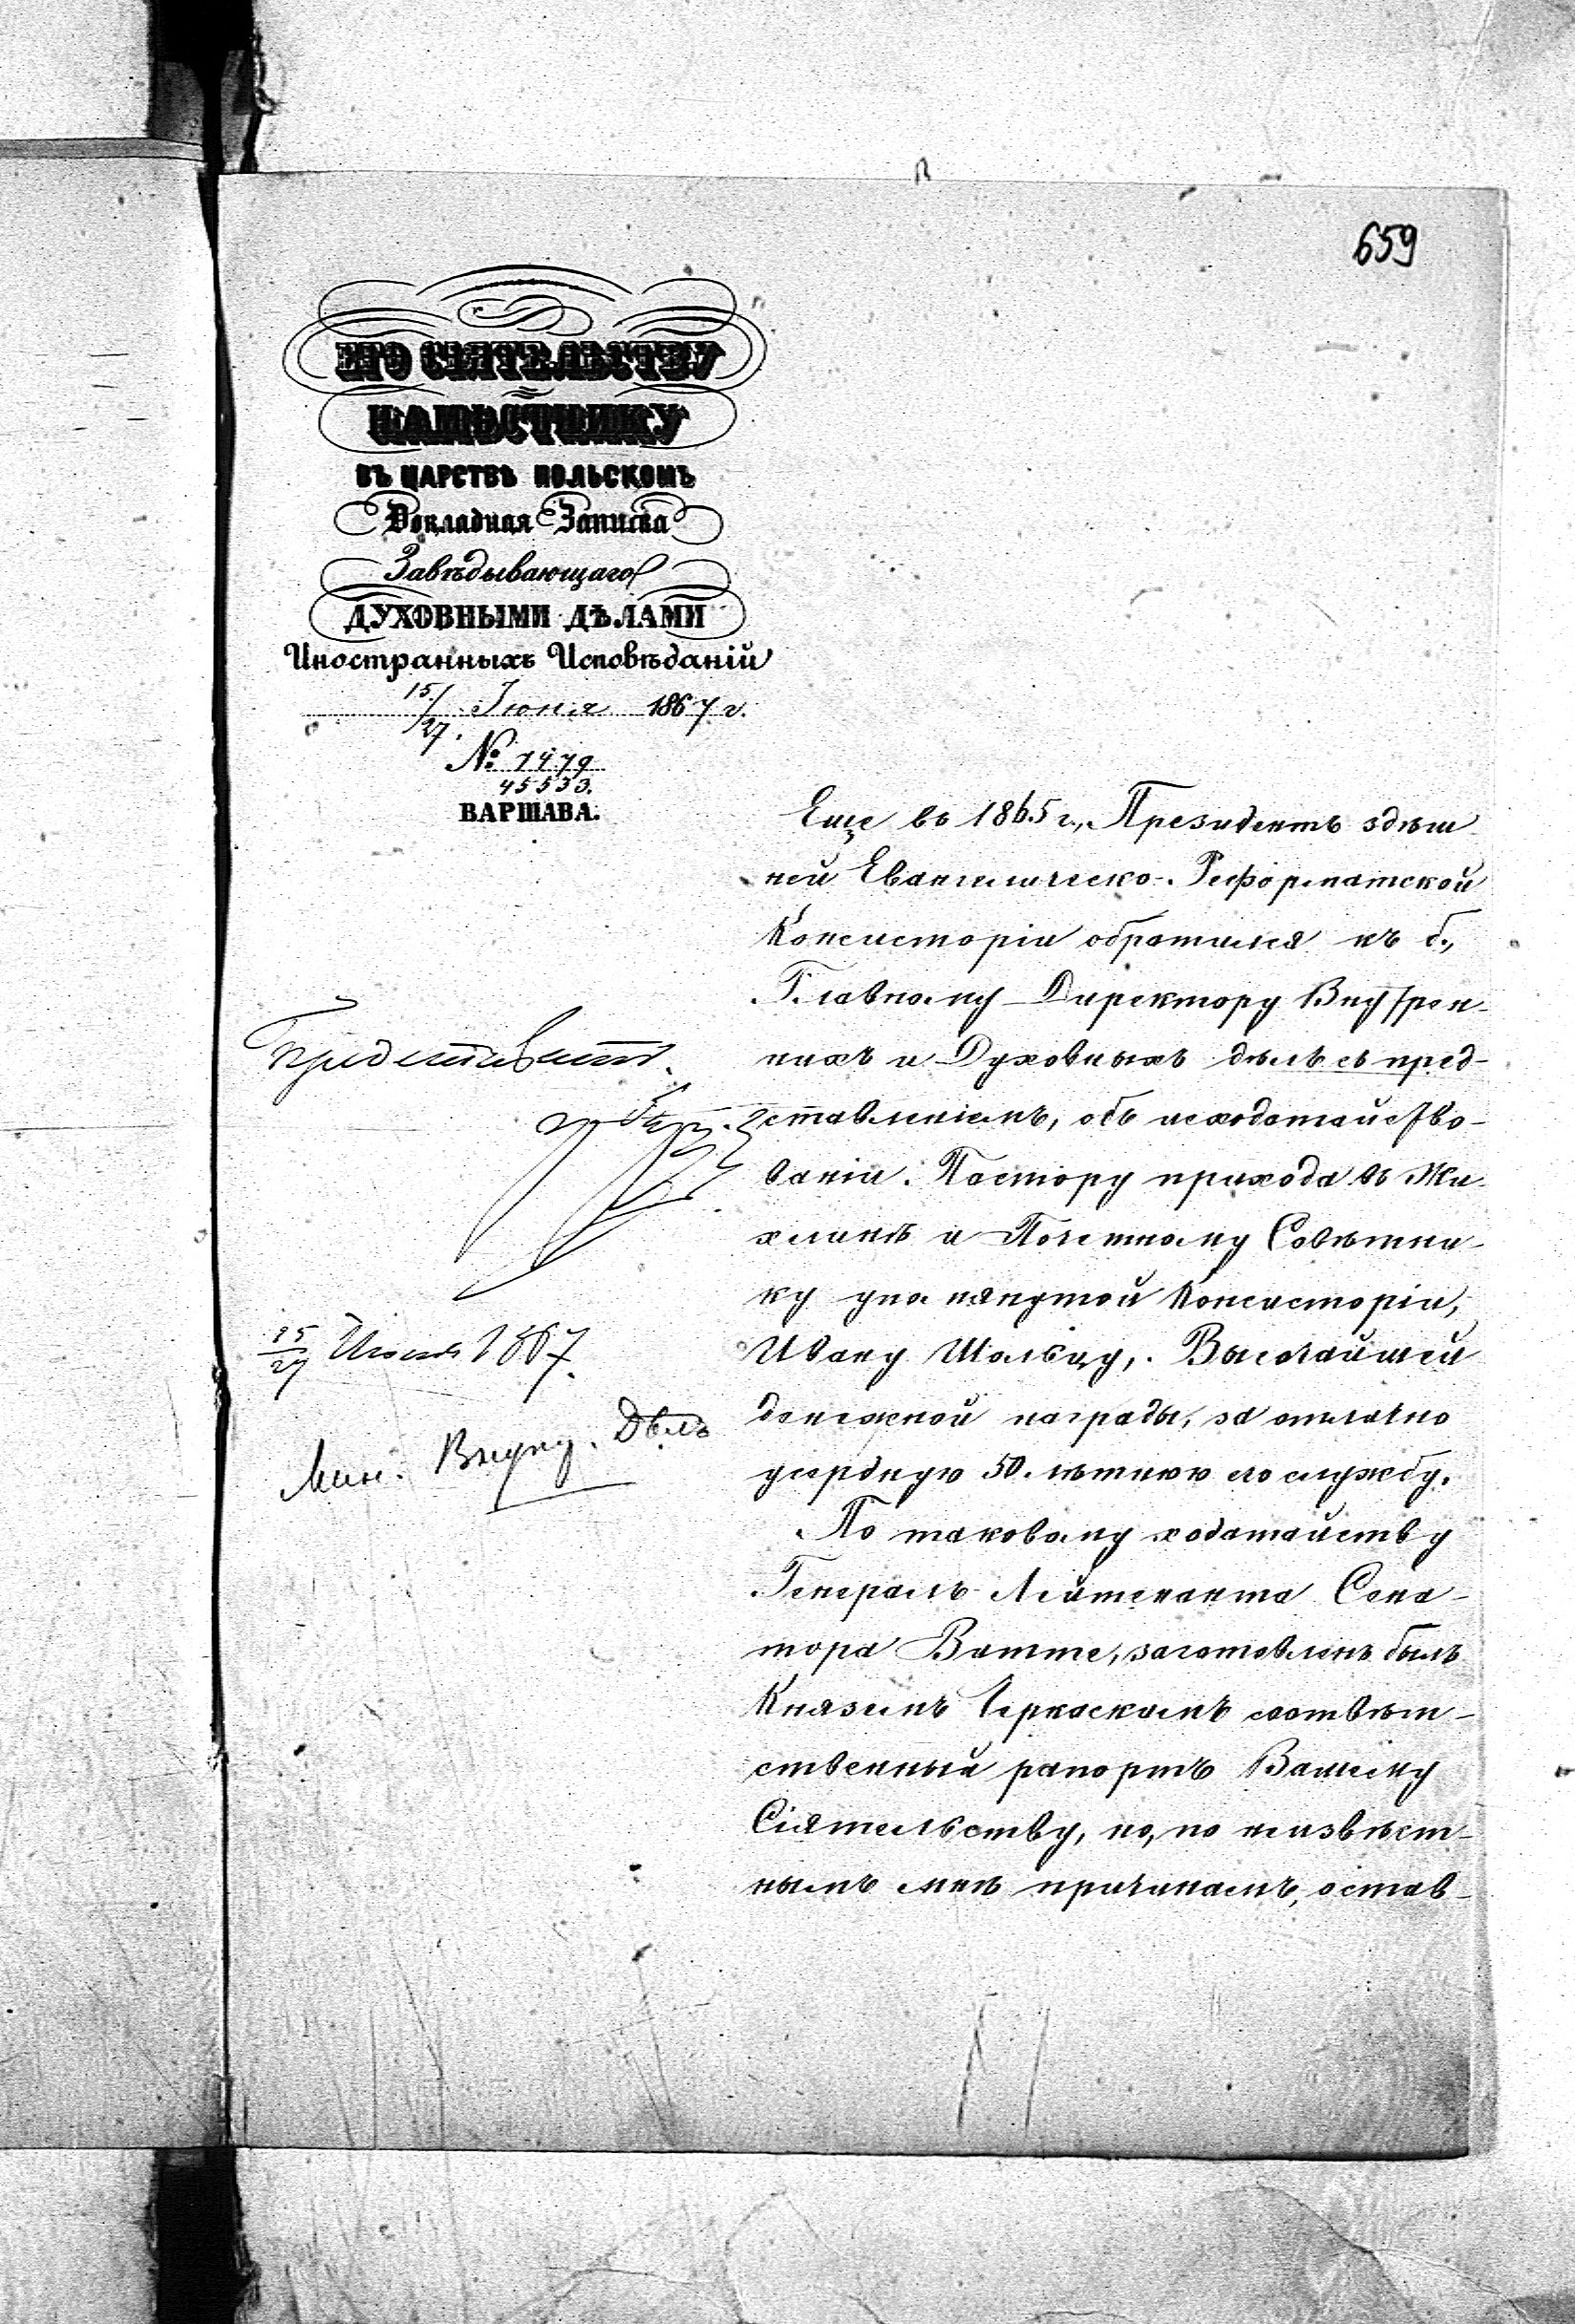 659
ЕГО СІЯТЕЛЬСТВУ
НАМѢСТНИКУ
ВЪ ЦАРСТВѢ ПОЛЬСКОМЪ
Докладная Записка
Завѣдывающаго
ДУХОВНЫМИ ДѢЛАМИ
Иностранныхъ Исповѣданій
15/27 Іюня 1867 г.
№ 1479
45533.
ВАРШАВА.
Представить.
15/27 Июня 1867.
Мин. Внутр. Дѣлъ
Еще въ 1865 г., Президентъ здѣш-
ней Евангелическо-Реформатской
Консисторіи обратился къ б.,
Главному Директору Внутрен-
нихъ и Духовныхъ дѣлъ съ пред-
ставленіемъ, объ исходатайство-
ваніи Пастору прихода въ Жи-
хлинѣ и Почетному Совѣтни-
ку упомянутой Консисторіи,
Ивану Шольцу, Высочайшей
денежной награды, за отлично
усердную 50-лѣтнюю его службу.
По таковому ходатайству
Генералъ-Лейтенанта Сена-
тора Витте, заготовленъ былъ
Княземъ Черкаскимъ соотвѣт-
ственный рапортъ Вашему
Сіятельству, но, по неизвѣст-
нымъ мнѣ причинамъ, остав-